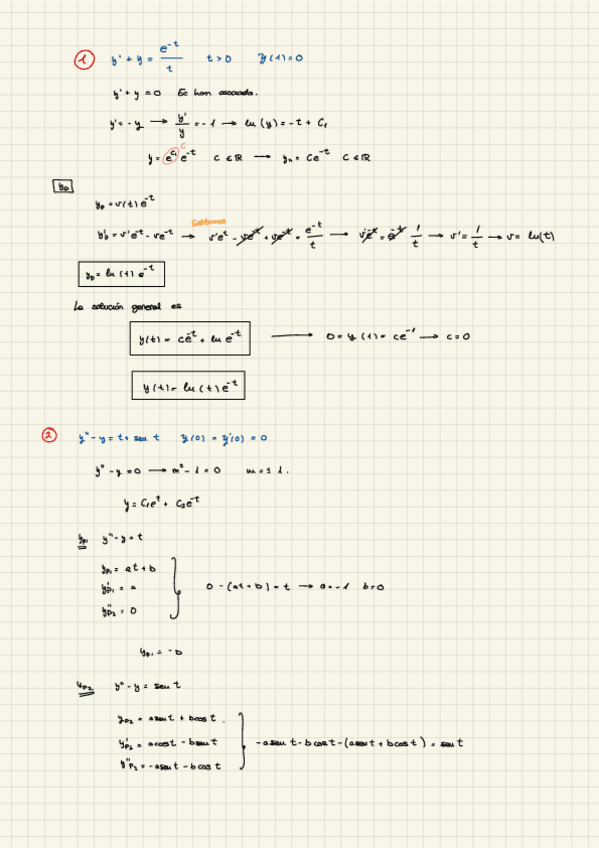 1 y' + y = e^-t / t t > 0 y(1) = 0
y' + y = 0 Ec hom asociada.
y' = -y → y'/y = -1 → ln(y) = -t + C₁
y = e^C₁ e^-t C C ∈ ℝ → yₕ = Ce^-t C ∈ ℝ
yp
yp = v(t) e^-t
y'p = v'e^-t - ve^-t → v'e^-t - ve^-t + ve^-t = e^-t / t → v'e^-t = e^-t 1/t → v' = 1/t → v = ln(t)
yp = ln(t) e^-t
La solución general es
y(t) = ce^-t + ln e^-t → 0 = y(1) = ce^-1 → c = 0
y(t) = ln(t) e^-t
2 y'' - y = t + sen t y(0) = y'(0) = 0
y'' - y = 0 → m² - 1 = 0 m = ± 1.
y = C₁e^t + C₂e^-t
yp₁ y'' - y = t
yp₁ = at + b
y'p₁ = a
y''p₂ = 0
0 - (at + b) = t → a = -1 b = 0
yp₁ = -b
yp₂ y'' - y = sen t
yp₂ = a sen t + b cos t.
y'p₂ = a cos t - b sen t
y''p₂ = -a sen t - b cos t
-a sen t - b cos t - (a sen t + b cos t) = sen t